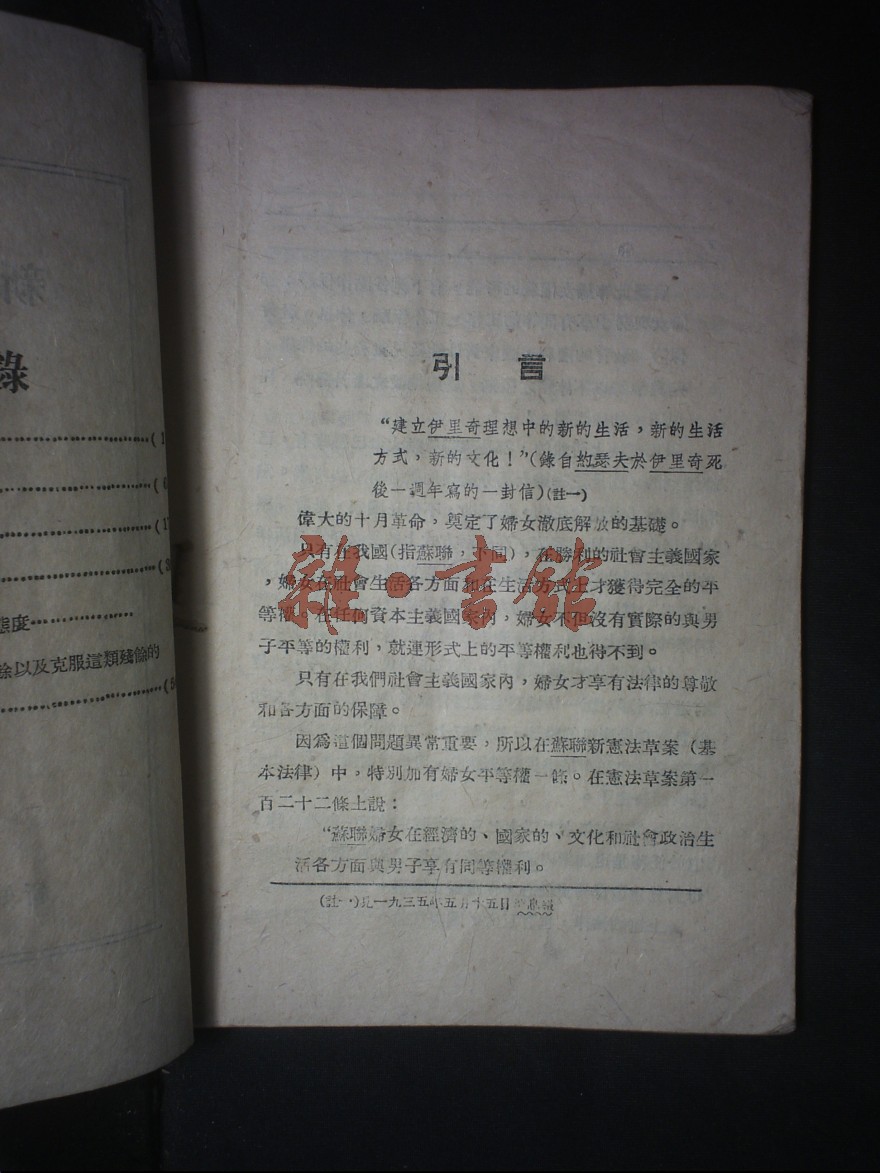 錄
態度
餘以及克服這類殘餘的
引言
“建立伊里奇理想中的新的生活，新的生活
方式，新的文化！”(錄自約瑟夫於伊里奇死
後一週年寫的一封信)(註一)
偉大的十月革命，奠定了婦女澈底解放的基礎。
只有在我國(指蘇聯，下同)，在勝利的社會主義國家
，婦女在社會生活各方面和在生活方式上才獲得完全的平
等權。在任何資本主義國家內，婦女不但沒有實際的與男
子平等的權利，就連形式上的平等權利也得不到。
只有在我們社會主義國家內，婦女才享有法律的尊敬
和各方面的保障。
因為這個問題異常重要，所以在蘇聯新憲法草案（基
本法律）中，特別加有婦女平等權一條。在憲法草案第一
百二十二條上說：
“蘇聯婦女在經濟的、國家的、文化和社會政治生
活各方面與男子享有同等權利。
(註一)見一九三五年五月十五日
雜·書館